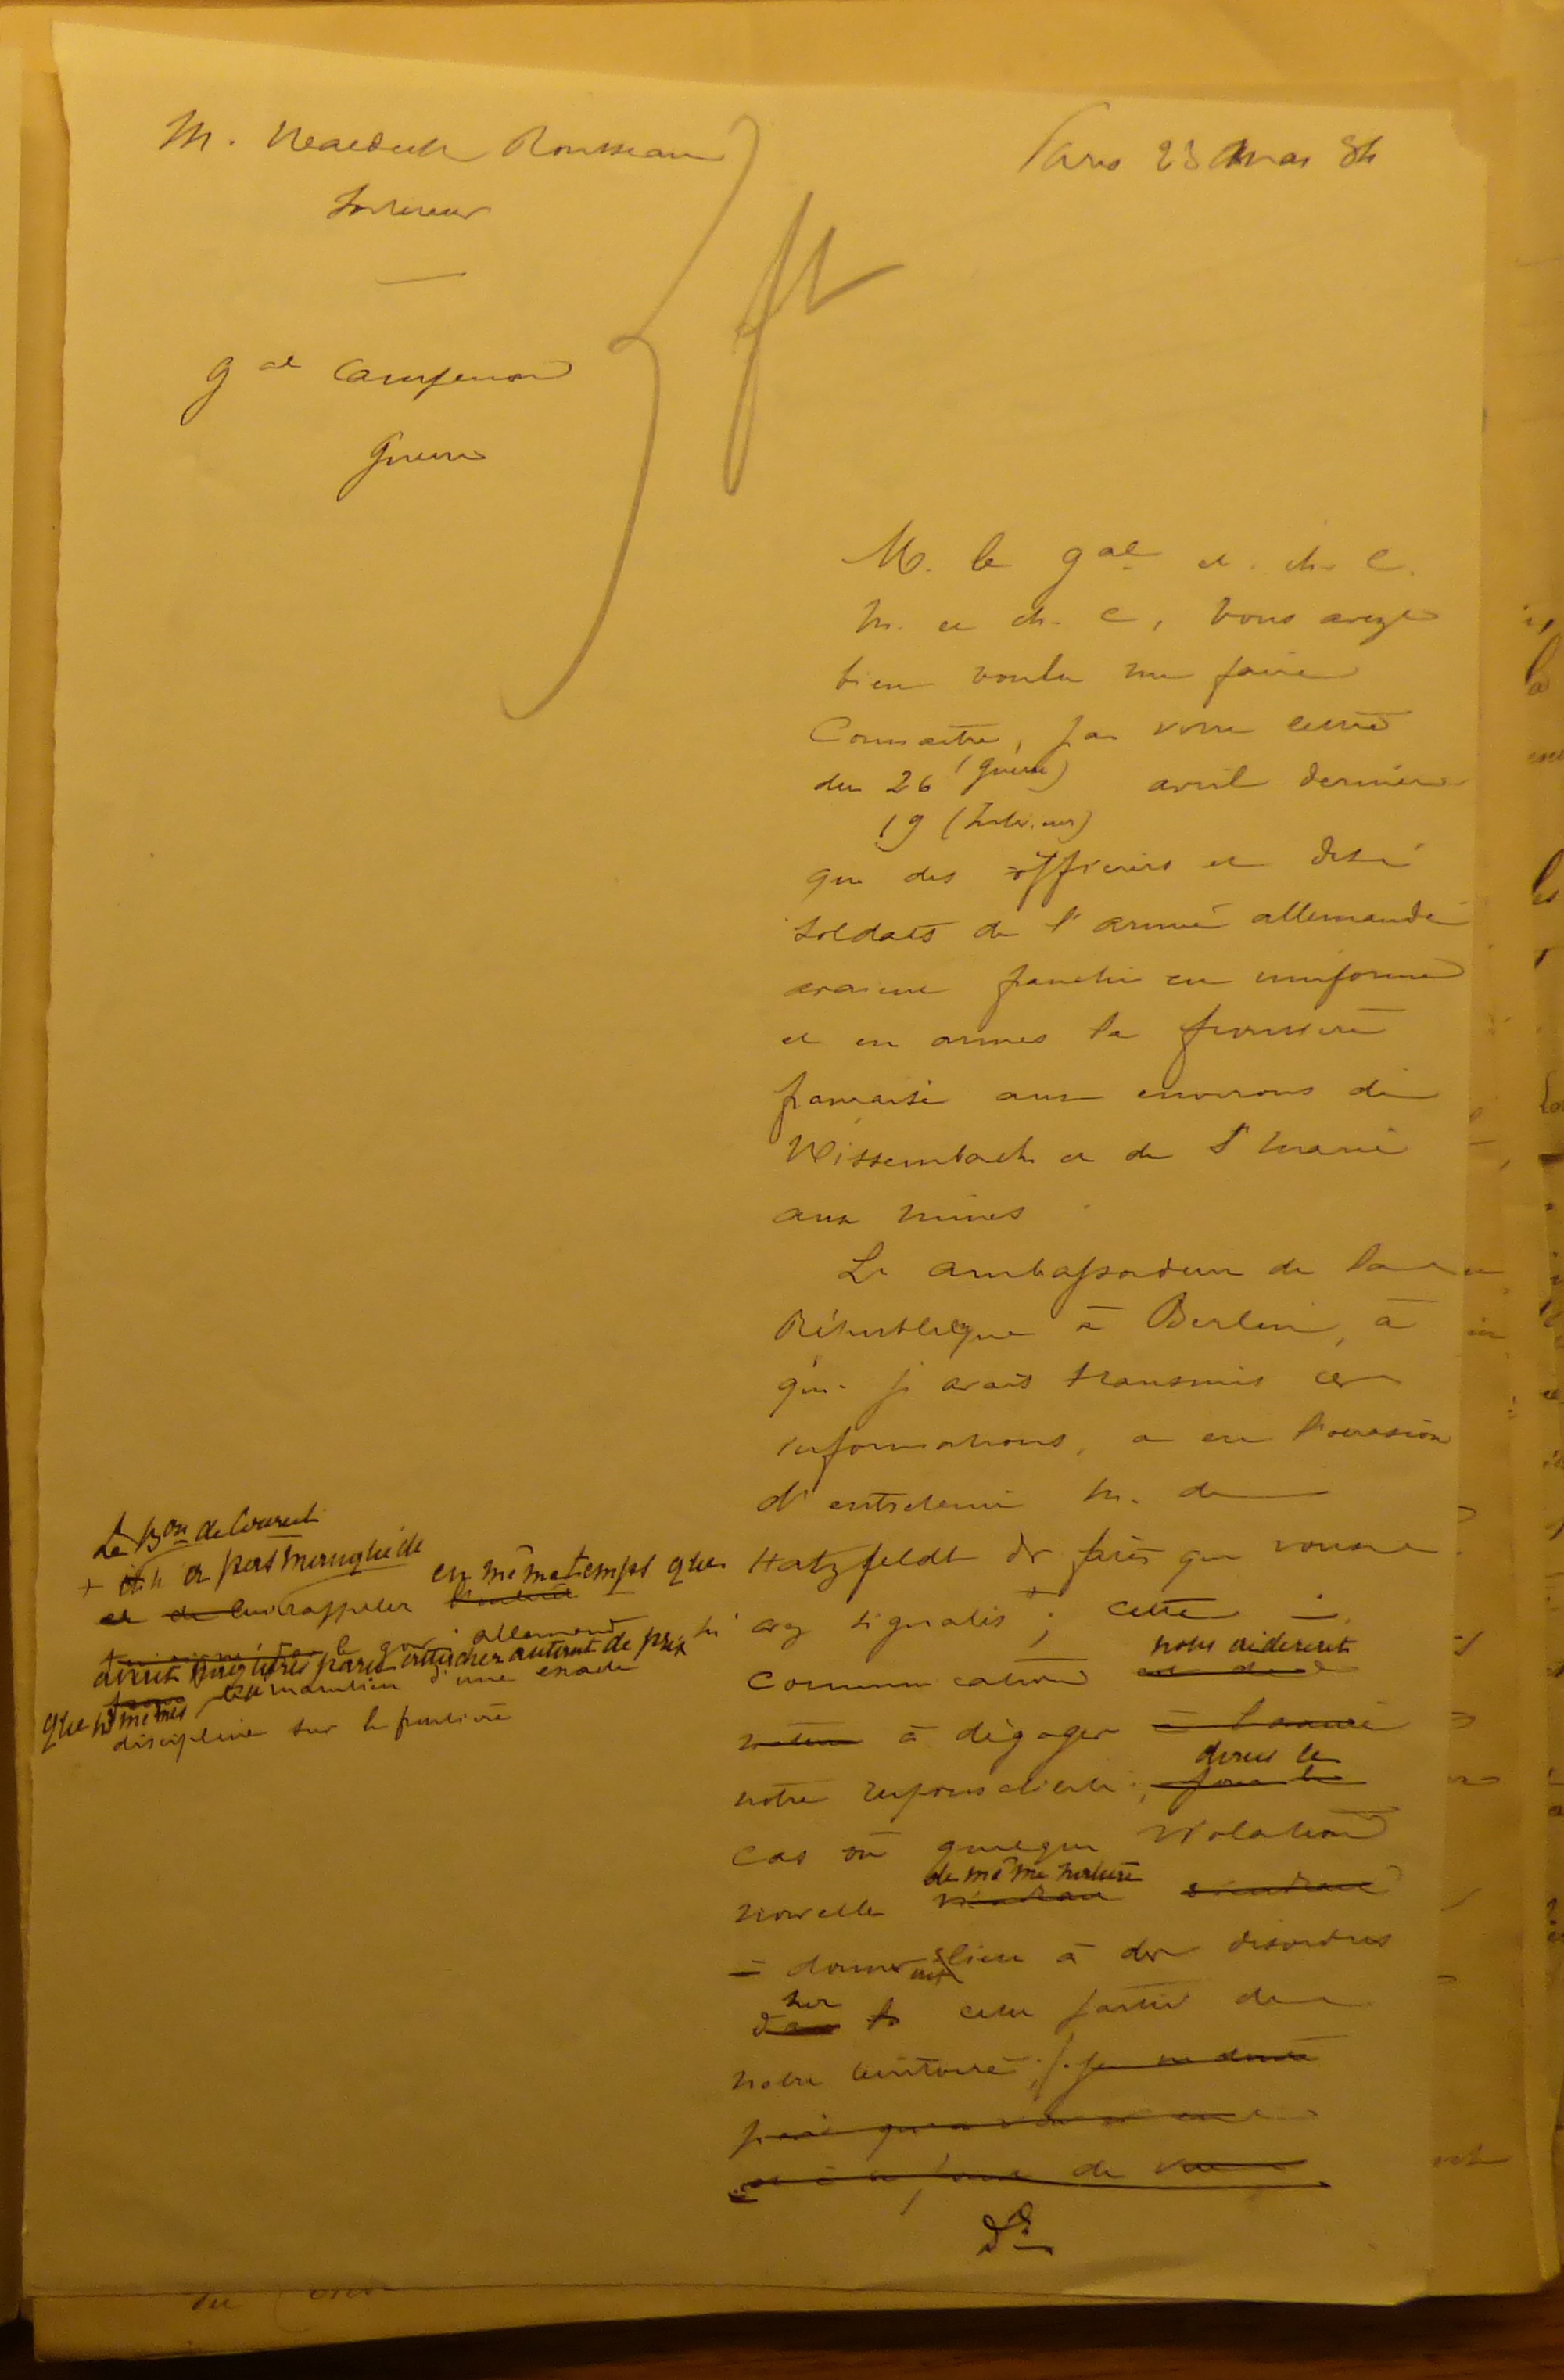 M. Waldeck Rousseau
Interieur
Paris 23 mai 84
Gal Campenon
Guerre
M. le gal et ch. C.
M. et ch. C, vous avez
bien voulu me faire
Connaitre, par votre lettre
du 26 (guerre) avril dernier
19 (Intérieur)
que des officiers et des
soldats de l'armée allemande
avaient franchi en uniforme
et en armes la frontière
française aux environs de
Wissembach et de Ste Marie
aux mines
Le ambassadeur de la
République à Berlin, à
qui j'avais transmis ces
informations, a eu l'occasion
d'entretenir M. de
Hatzfeldt des faits que vous
avez signalés + ; cette
communication nous aiderait
à dégager
notre responsabilité, dans le
cas où quelque violation
nouvelle de même nature
donnerait lieu à des désordres
sur cette partie de
notre territoire
Le Bon de Courcel
+ n'a pas manqué de
lui rappeler en même temps que
le gouv. allemand
avait paru attacher autant de prix
que nous mêmes au maintien d'une exacte
discipline sur la frontière